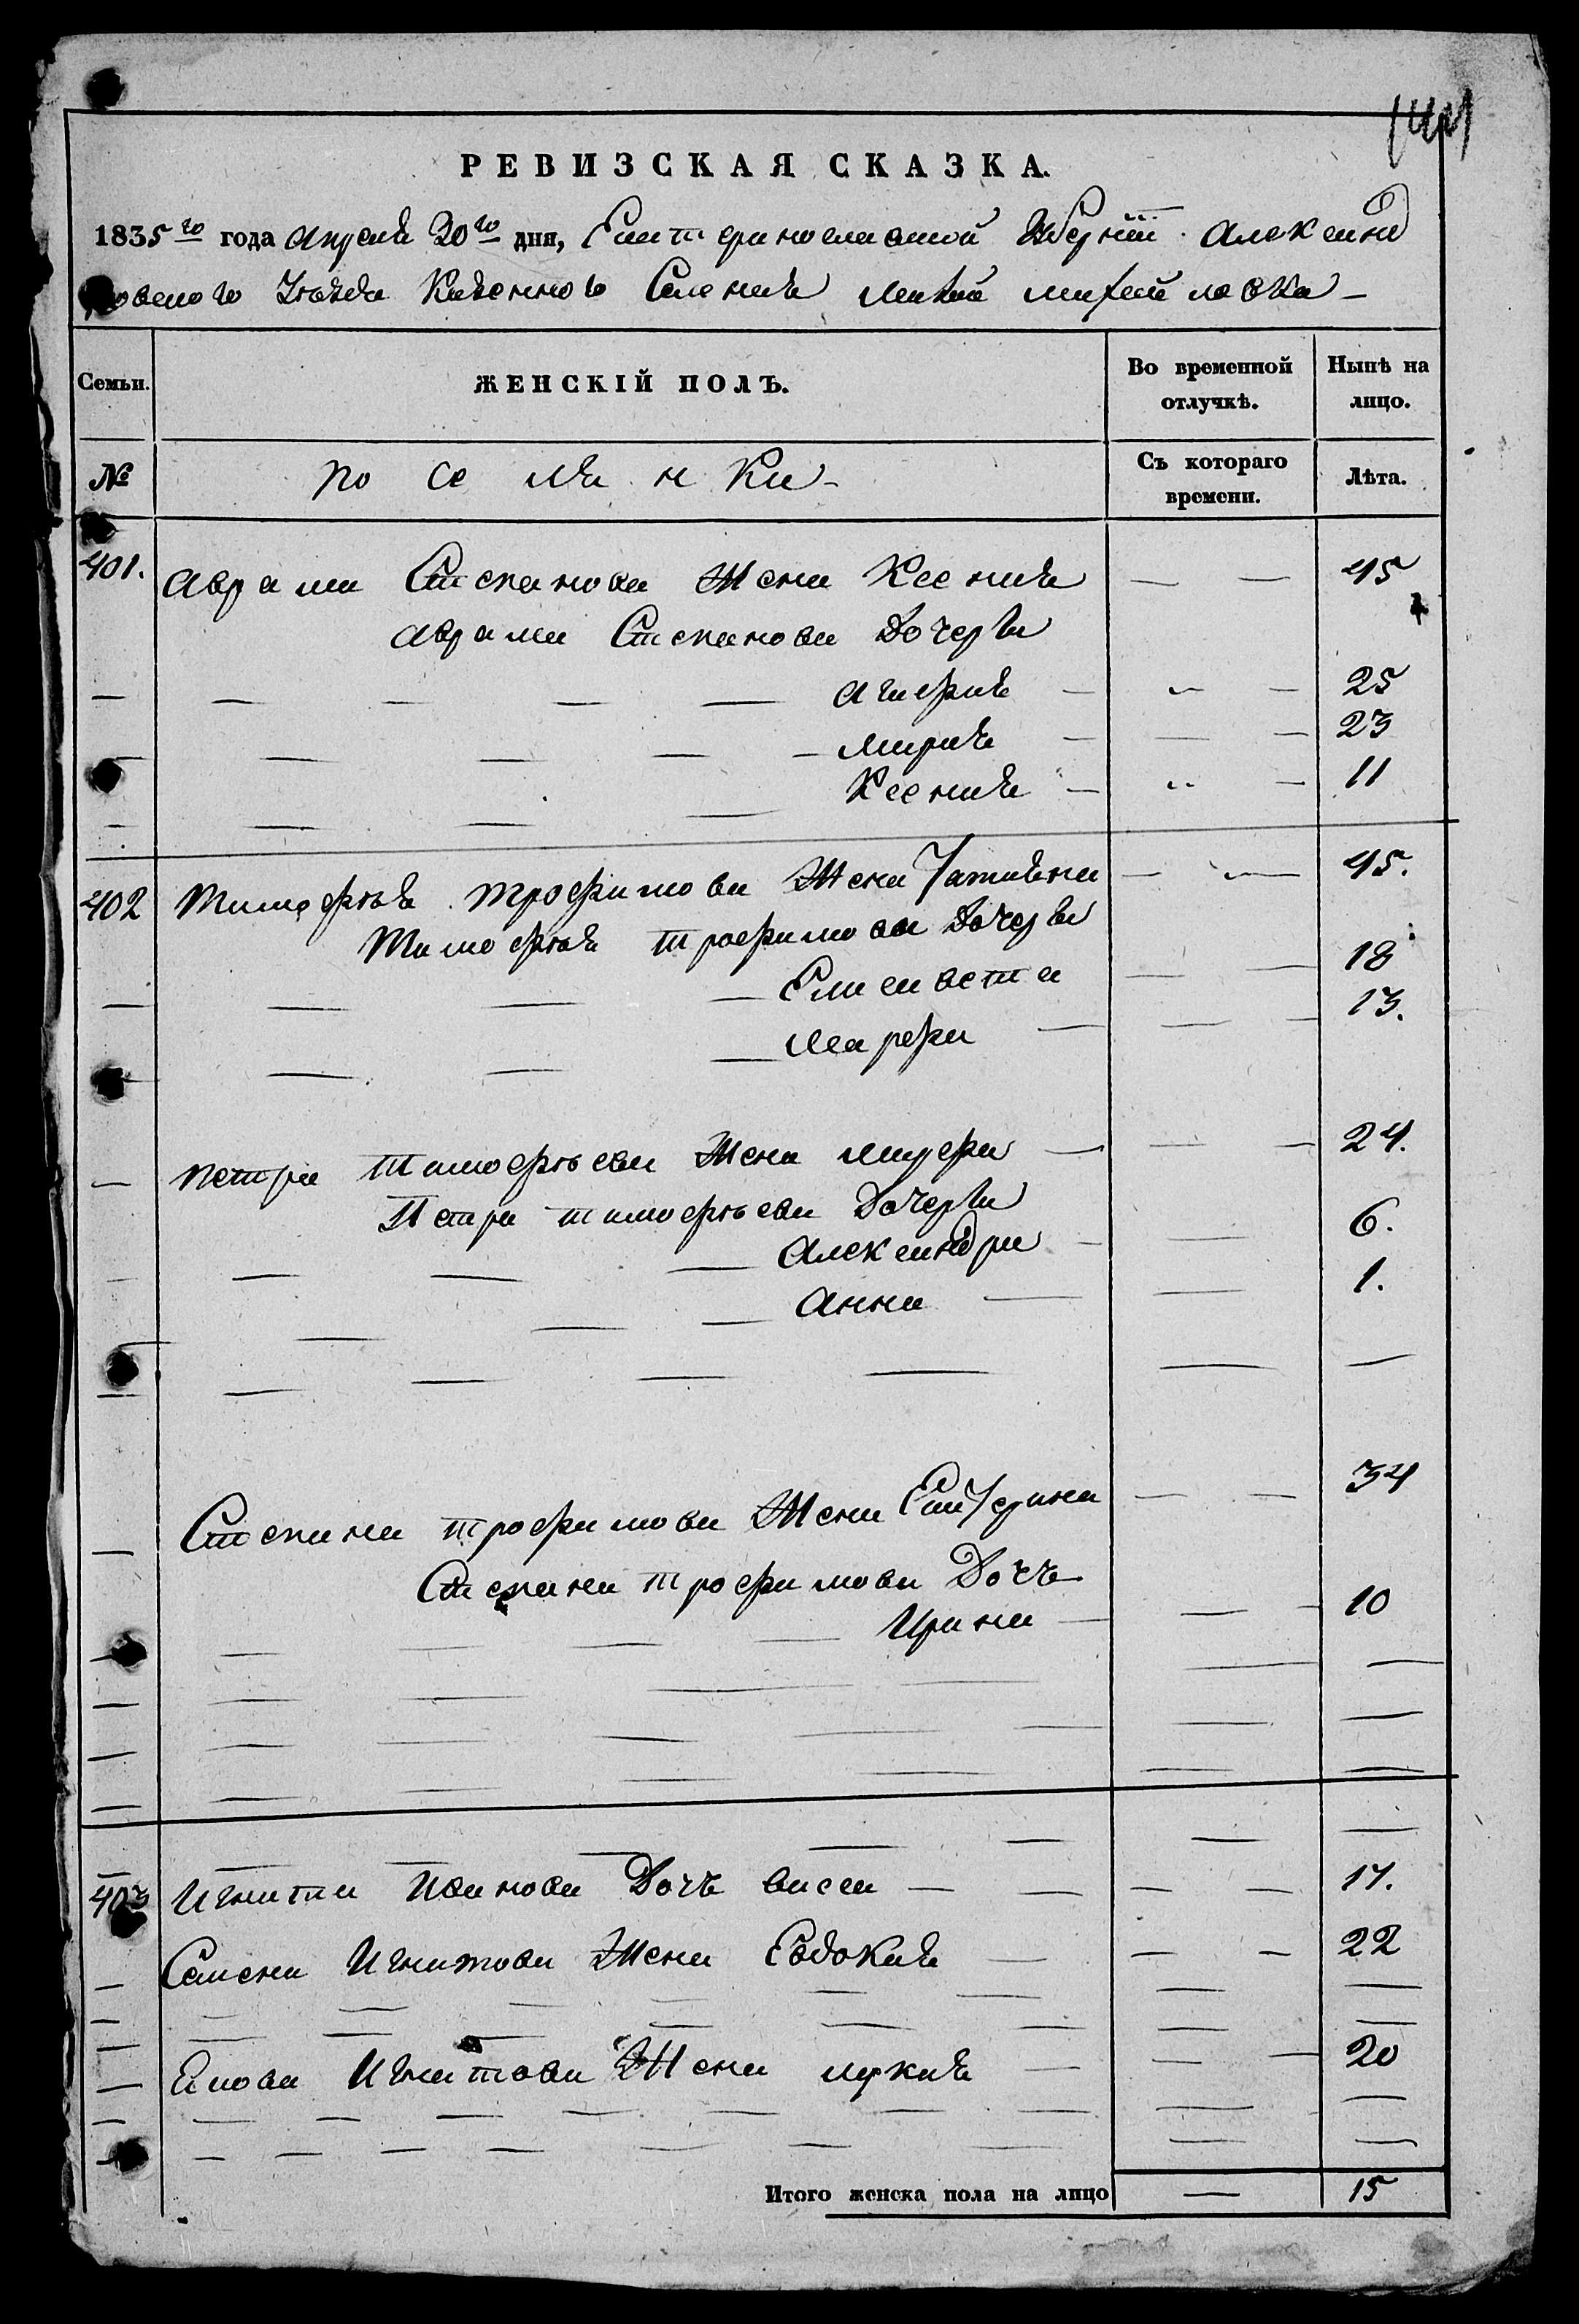 РЕВИЗСКАЯ СКАЗКА.
1835го года апреля 20го дня, Екатеринославской Губернии Александ
ровского Уезда Казенного Селения Малой михайловки
Семьи.
ЖЕНСКІЙ ПОЛЪ.
Во временной отлучкѣ.
Нынѣ на лицо.
№
поселянки
Съ котораго времени.
Лѣта.
401. Аврама Степанова Жена Ксения — — 45
Аврама Степанова Дочерьи
— — — — — Агафия — — — 25
— — — — — Мария — — — 23
— — — — Ксения — — — 11
402 Тимофея трофимова Жена Татияна — — 45.
Тимофея трофимова Дочерьи
— — — — Елисавета — — 18
— — — Марфа — — — 13.
— Петра тимофеева Жена — — — 24.
Петра тимофеева Дочерьи
— — — — Александра — — 6.
— — — Анна — — 1.
— Степана трофимова Жена Екатерина — — 34
Степана трофимова Дочь
— — — — Ирина — — — 10
403 Игната Иванова Дочь васса — — — — 17.
— Семена Игнатова Жена Евдокия — — — 22
— Якова Игнатова Жена лукия — — — 20
Итого женска пола на лицо — 15